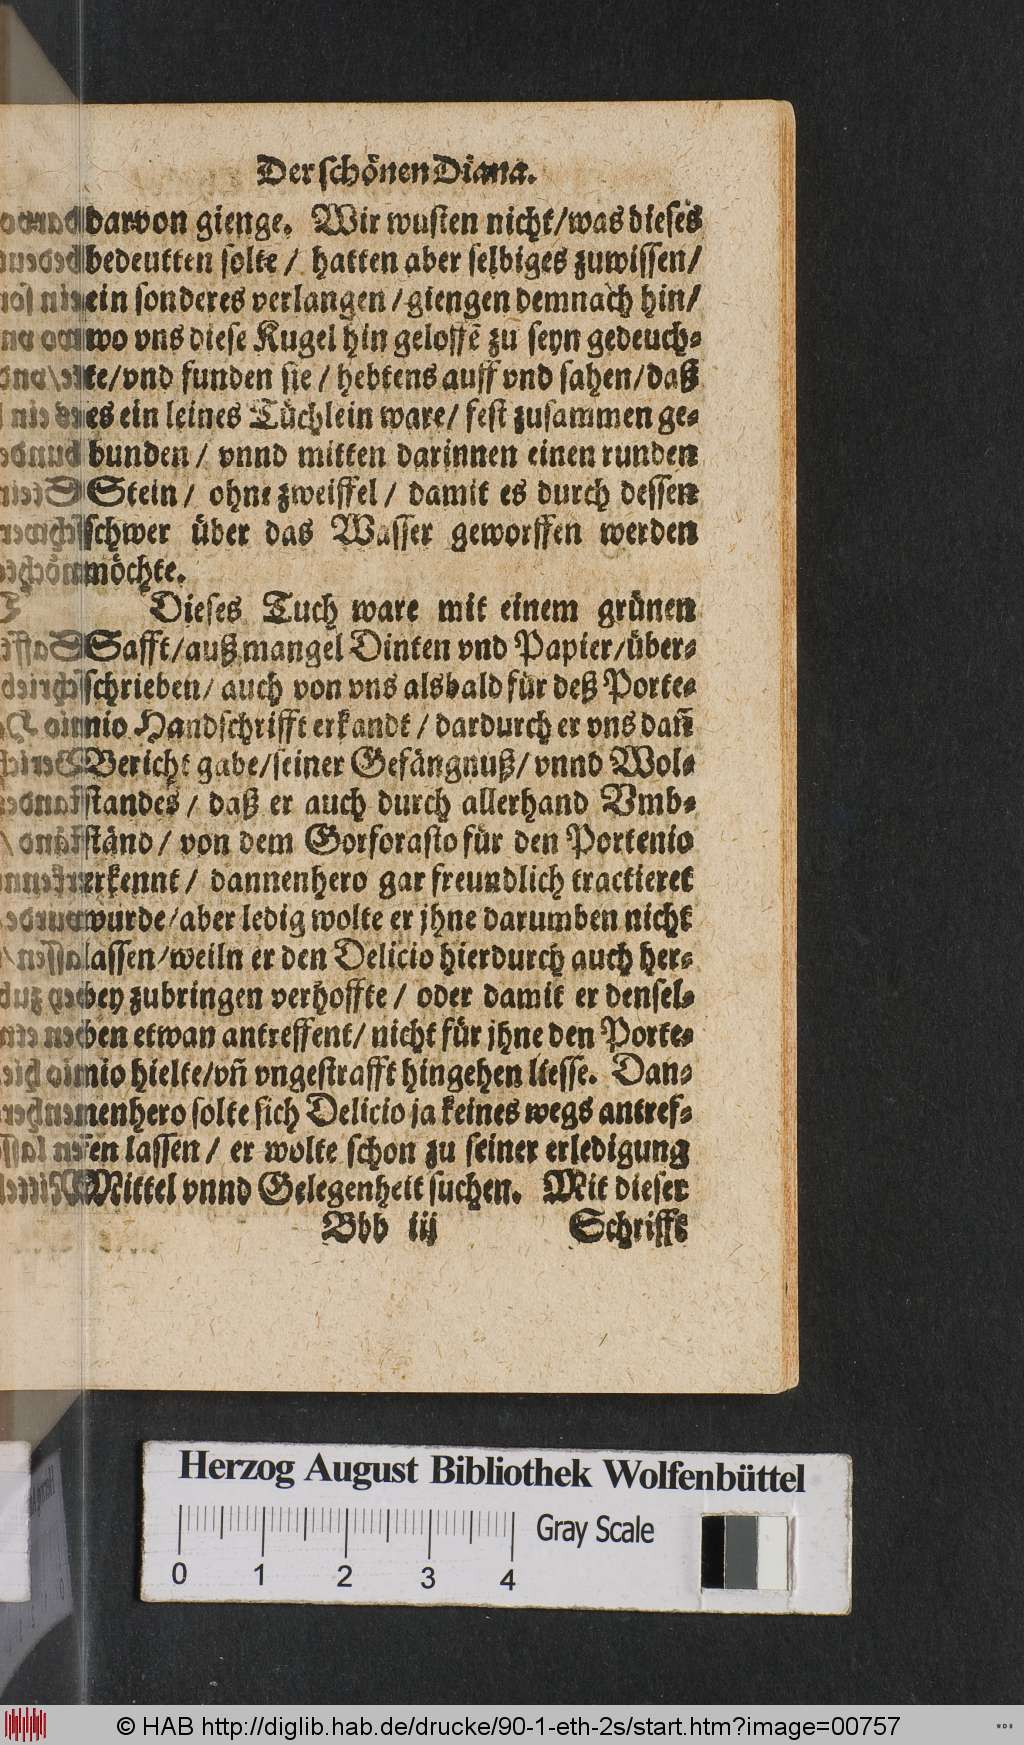 Der schönen Diana.
darvon gienge. Wir wusten nicht/was dieses
bedeutten solte / hatten aber selbiges zuwissen/
ein sonderes verlangen / giengen demnach hin/
wo vns diese Kugel hin geloffẽ zu seyn gedeuch-
te/vnd funden sie / hebtens auff vnd sahen/daß
es ein leines Tüchlein ware/ fest zusammen ge-
bunden / vnnd mitten darinnen einen runden
Stein / ohne zweiffel / damit es durch dessen
schwer über das Wasser geworffen werden
möchte.
Dieses Tuch ware mit einem grünen
Safft/auß mangel Dinten vnd Papier/über-
schrieben/ auch von vns alsbald für deß Porte-
nio Handschrifft erkandt / dardurch er vns dañ
Bericht gabe/seiner Gefängnuß/ vnnd Wol-
standes / daß er auch durch allerhand Vmb-
ständ / von dem Gorforasto für den Portenio
erkennt / dannenhero gar freundlich tractieret
wurde/aber ledig wolte er jhne darumben nicht
lassen/weiln er den Delicio hierdurch auch her-
bey zubringen verhoffte / oder damit er densel-
ben etwan antreffent/ nicht für jhne den Porte-
nio hielte/vñ vngestrafft hingehen liesse. Dan-
nenhero solte sich Delicio ja keines wegs antref-
fen lassen / er wolte schon zu seiner erledigung
Mittel vnnd Gelegenheit suchen. Mit dieser
Bbb iij Schrifft
Herzog August Bibliothek Wolfenbüttel
Gray Scale
0 1 2 3 4
© HAB http://diglib.hab.de/drucke/90-1-eth-2s/start.htm?image=00757